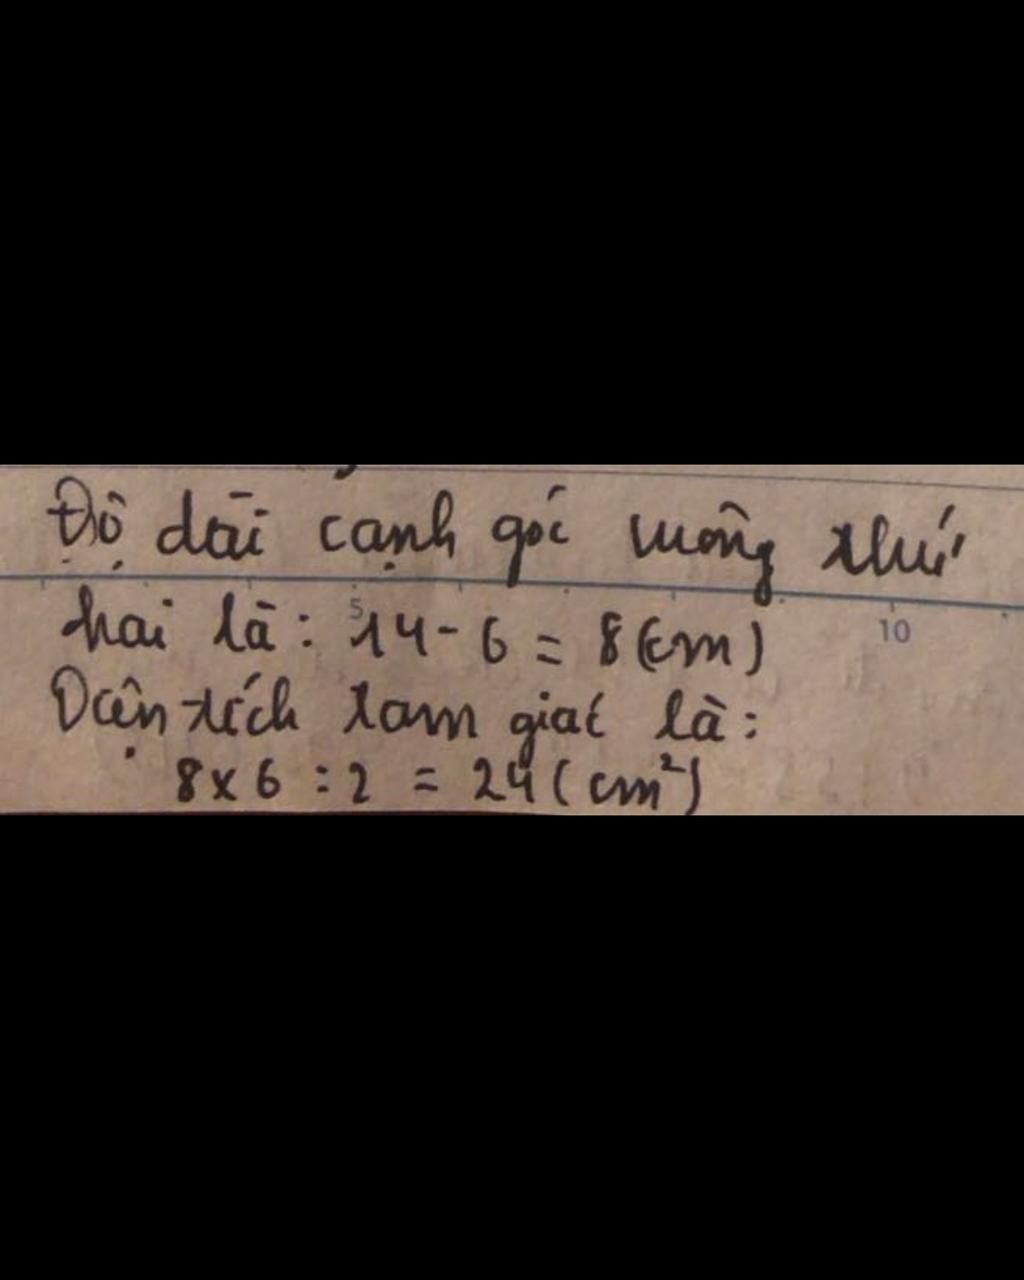 Độ dài cạnh góc vuông thứ
5 10
hai là: 14 - 6 = 8(cm)
Diện tích tam giác là:
8 x 6 : 2 = 24 (cm²)